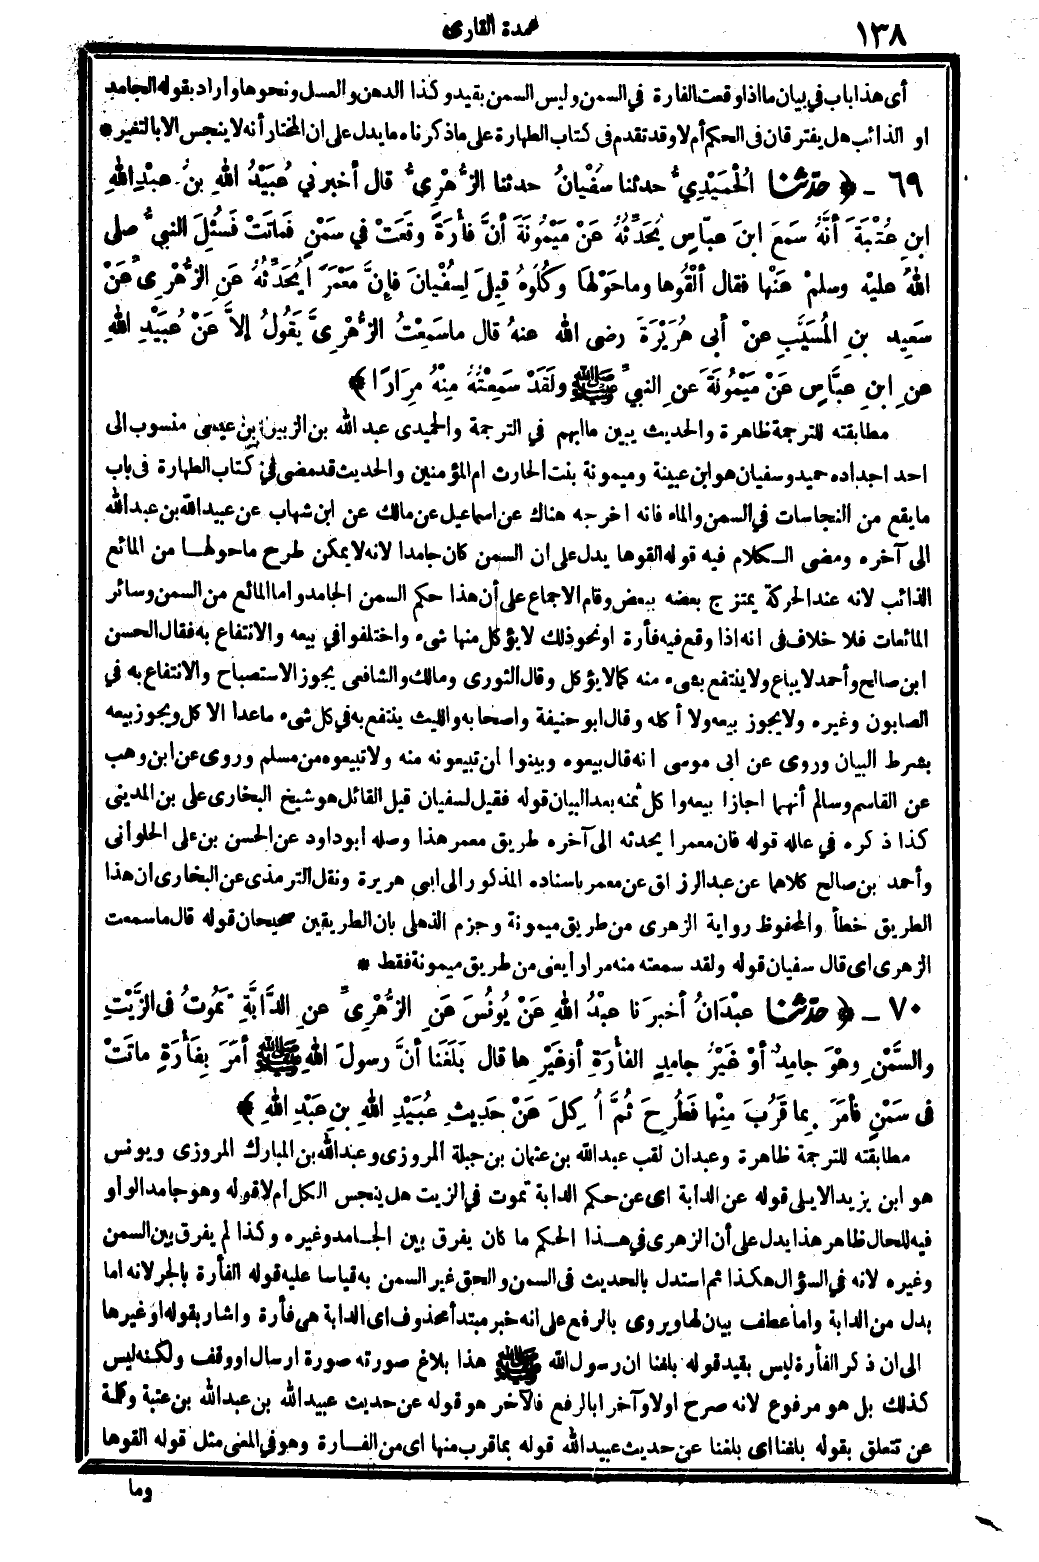 ١٣٨
عمدة القارى
أى هذا باب فى بيان ما اذا وقعت الفارة في السمن وليس السمن بقيد وكذا الدهن والعسل ونحوها واراد بقوله الجامد
او الذائب هل يفترقان فى الحكم أم لا وقد تقدم فى كتاب الطهارة على ما ذكرناه ما يدل على ان المختار أنه لا ينجس الا بالتغير *
٦٩ ـ ﴿ حدّثنا الْحُمَيْدِيُّ حدثنا سفْيانُ حدثنا الزُّهْرِىُّ قال أخبرني عُبَيْدُ اللهِ بنُ عبْدِاللهِ
ابنِ عُتْبَةَ أنَّهُ سَمعَ ابنَ عبَّاسٍ يُحَدِّثُهُ عَنْ مَيْمُونَةَ أنَّ فأْرَةً وقَعَتْ في سَمْنٍ فَماتَتْ فَسُئِلَ النبيُّ صلى
اللهُ عليْه وسلمْ عَنْها فقال ألْقُوها وما حَوْلَها وَكُلُوهُ قِيلَ لِسُفْيانَ فإنَّ مَعْمَرًا يُحَدِّثُهُ عَنِ الزُّهْرِىِّ عَنْ
سَعِيد بنِ المُسَيَّبِ عنْ أبى هُرَيْرَةَ رضى الله عنهُ قال ما سَمِعْتُ الزُّهْرِىَّ يَقُولُ إلاَّ عَنْ عُبَيْدِ اللهِ
عن ابنِ عبَّاسٍ عَنْ مَيْمُونَةَ عَنِ النبيِّ ﷺ ولَقَدْ سَمِعْتُهُ مِنْهُ مِرَارًا ﴾
مطابقته للترجمة ظاهرة والحديث يبين ما ابهم في الترجمة والحميدى عبد الله بن الزبير بن عيسى منسوب الى
احد اجداده حميد وسفيان هو ابن عيينة وميمونة بنت الحارث ام المؤمنين والحديث قد مضى في كتاب الطهارة فى باب
ما يقع من النجاسات في السمن والماء فانه اخرجه هناك عن اسماعيل عن مالك عن ابن شهاب عن عبيد الله بن عبد الله
الى آخره ومضى الكلام فيه قوله القوها يدل على ان السمن كان جامدا لانه لا يمكن طرح ما حولها من المائع
الذائب لانه عند الحركة يمتزج بعضه ببعض وقام الاجماع على أن هذا حكم السمن الجامد واما المائع من السمن وسائر
المائعات فلا خلاف فى انه اذا وقع فيه فأرة او نحو ذلك لا يؤكل منها شىء واختلفوا في بيعه والانتفاع به فقال الحسن
ابن صالح وأحمد لا يباع ولا ينتفع بشىء منه كما لا يؤكل وقال الثورى ومالك والشافعى يجوز الاستصباح والانتفاع به في
الصابون وغيره ولا يجوز بيعه ولا أكله وقال ابو حنيفة واصحابه والليث ينتفع به في كل شىء ما عدا الاكل ويجوز بيعه
بشرط البيان وروى عن ابى موسى انه قال بيعوه وبينوا لمن تبيعونه منه ولا تبيعوه من مسلم وروى عن ابن وهب
عن القاسم وسالم أنهما اجازا بيعه وا كل ثمنه بعد البيان قوله فقيل لسفيان قيل القائل هو شيخ البخارى على بن المدينى
كذا ذكره في علله قوله فان معمرا يحدثه الى آخره طريق معمر هذا وصله ابو داود عن الحسن بن على الحلوانى
وأحمد بن صالح كلاهما عن عبد الرزاق عن معمر باسناده المذكور الى ابى هريرة ونقل الترمذى عن البخارى ان هذا
الطريق خطأ والمحفوظ رواية الزهرى من طريق ميمونة وجزم الذهلى بان الطريقين صحيحان قوله قال ما سمعت
الزهرى اى قال سفيان قوله ولقد سمعته منه مرارا يعنى من طريق ميمونة فقط *
٧٠ ـ ﴿ حدّثنا عبْدَانُ أخبرَنا عبْدُ اللهِ عَنْ يُونُسَ عَنِ الزُّهْرِىِّ عنِ الدَّابَّةِ تَمُوتُ فى الزَّيْتِ
والسَّمْنِ وهْوَ جامِدٌ أوْ غَيْرُ جامِدٍ الفأْرَةِ أوْ غَيْرِها قال بَلَغَنا أنَّ رسولَ اللهِ ﷺ أمَرَ بِفَأْرَةٍ ماتَتْ
فى سَمْنٍ فأمَرَ بِما قَرُبَ مِنْها فَطُرِحَ ثُمَّ أُكِلَ عَنْ حَدِيثِ عُبَيْدِ اللهِ بنِ عَبْدِ اللهِ ﴾
مطابقته للترجمة ظاهرة وعبدان لقب عبد الله بن عثمان بن جبلة المروزى وعبد الله بن المبارك المروزى ويونس
هو ابن يزيد الايلى قوله عن الدابة اى عن حكم الدابة تموت في الزيت هل ينجس الكل ام لا قوله وهو جامد الواو
فيه للحال ظاهر هذا يدل على أن الزهرى في هذا الحكم ما كان يفرق بين الجامد وغيره وكذا لم يفرق بين السمن
وغيره لانه في السؤال هكذا ثم استدل بالحديث فى السمن والحق غير السمن به قياسا عليه قوله الفأرة بالجر لانه اما
بدل من الدابة واما عطف بيان لها ويروى بالرفع على انه خبر مبتدأ محذوف اى الدابة هى فأرة واشار بقوله او غيرها
الى ان ذكر الفأرة ليس بقيد قوله بلغنا ان رسول الله ﷺ هذا بلاغ صورته صورة ارسال او وقف ولكنه ليس
كذلك بل هو مرفوع لانه صرح اولا وآخرا بالرفع فالآخر هو قوله عن حديث عبيد الله بن عبد الله بن عتبة وكلمة
عن تتعلق بقوله بلغنا اى بلغنا عن حديث عبيد الله قوله بما قرب منها اى من الفارة وهو في المعنى مثل قوله القوها
وما